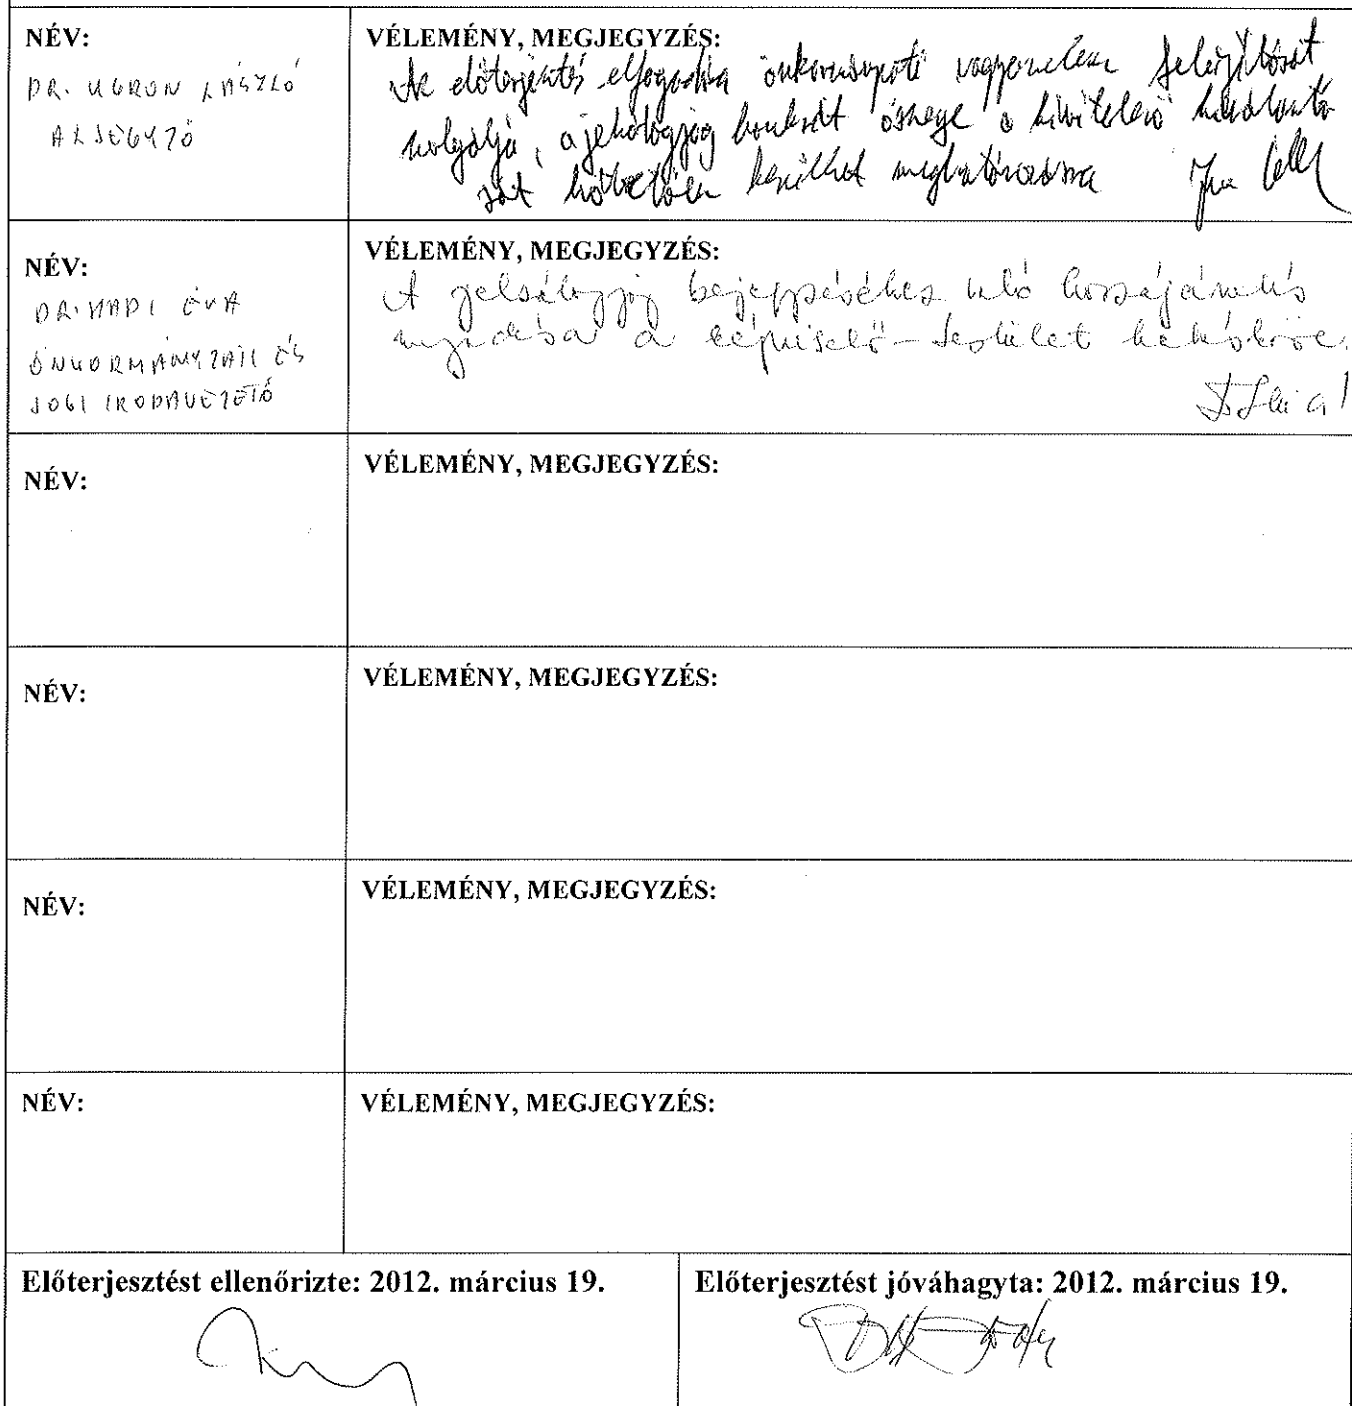 NÉV:
DR. UGRON LÁSZLÓ
ALJEGYZŐ
VÉLEMÉNY, MEGJEGYZÉS:
Az előterjesztés elfogadása önkormányzati vagyonelem felújítását
szolgálja, a jelzálogjog konkrét összege a kivitelező kiválasztá
sát követően kerülhet meghatározásra
NÉV:
DR. HADI ÉVA
ÖNKORMÁNYZATI ÉS
JOGI IRODAVEZETŐ
VÉLEMÉNY, MEGJEGYZÉS:
A jelzálogjog bejegyzéséhez való hozzájárulás
a képviselő-testület hatásköre.
NÉV:
VÉLEMÉNY, MEGJEGYZÉS:
NÉV:
VÉLEMÉNY, MEGJEGYZÉS:
NÉV:
VÉLEMÉNY, MEGJEGYZÉS:
NÉV:
VÉLEMÉNY, MEGJEGYZÉS:
Előterjesztést ellenőrizte: 2012. március 19.
Előterjesztést jóváhagyta: 2012. március 19.